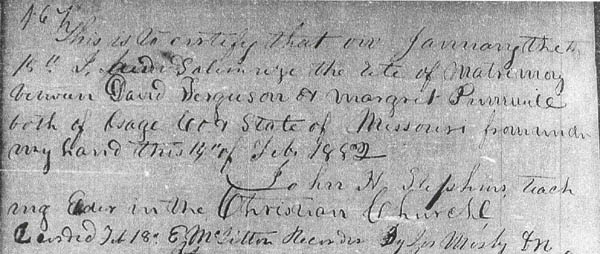 467
This is to certify that on January the
15th I did Solemnize the rite of Matrimony
between David Ferguson & Margret Pumvill
both of Osage Co & State of Missouri from under
my hand this 14th of Feb 1882
John H Stephins, teach
ing Elder in the Christian Church
Recorded Feb 18th E McFitton Recorder By